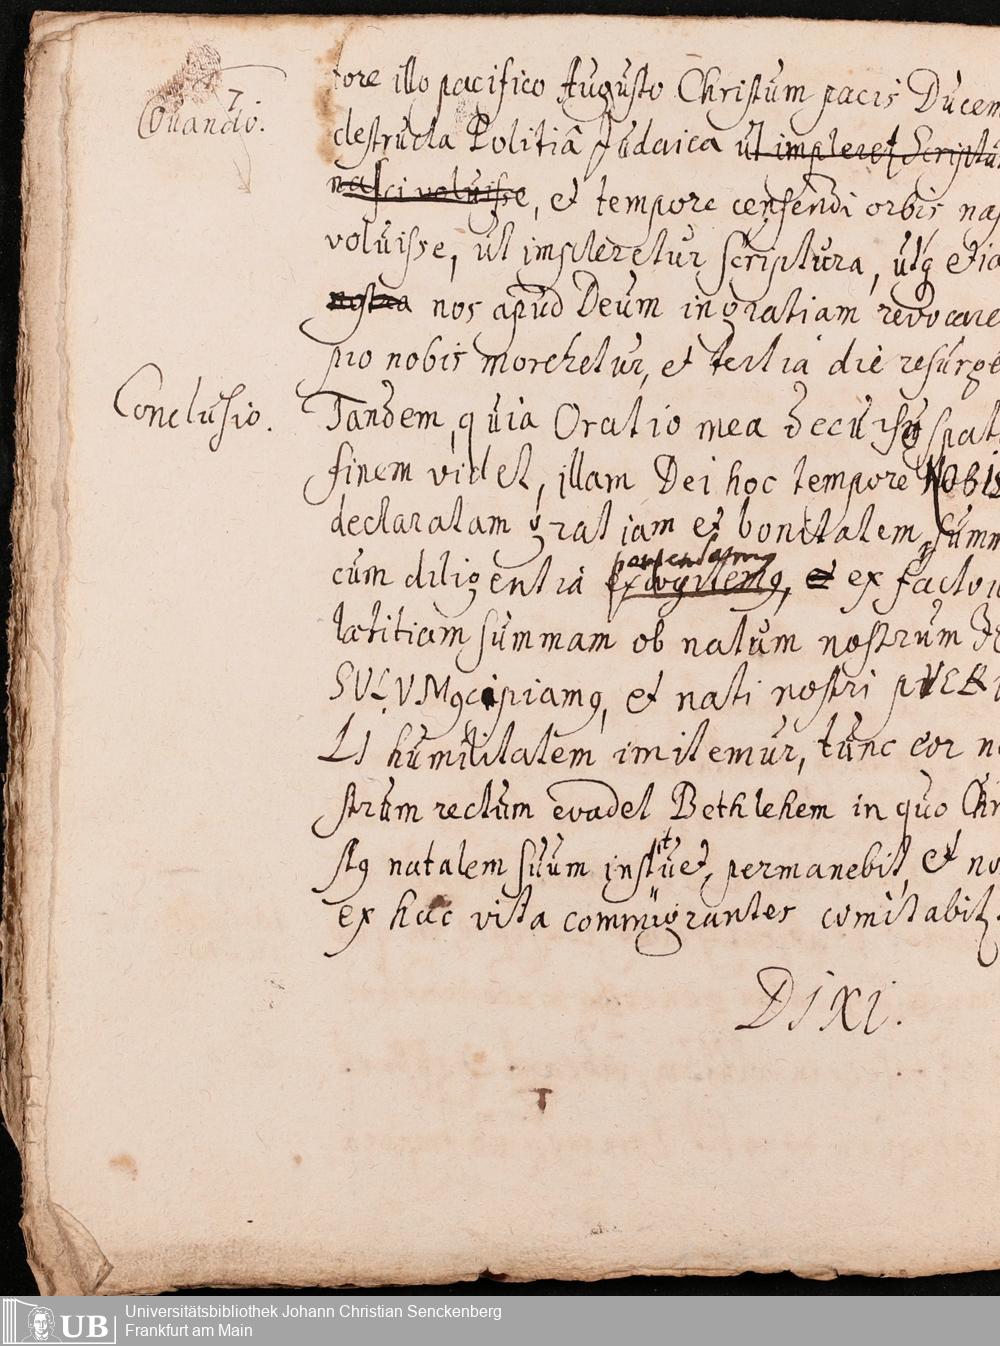 7
Quando.
tore illo pacifico Augusto Christum pacis Ducem
destructa Politiâ Judaica ut impleret Scriptu
nasci voluisse, et tempore censendi orbis nas
voluisse, ut impleretur scriptura, utq etia
nostra nos apud Deum in gratiam revocare
pro nobis morehetur, et tertia die resurge
Conclusio.
Tandem, quia Oratio mea decurso spat
finem videt, illam Dei hoc tempore NOBIS
declaratam gratiam et bonitatem summ
pertendamq
cum diligentiâ excogitemq, et ex facto
lætitiam summam ob natum nostrum JE
SULUM q cipiamq, et nati nostri PUERU
LI humilitatem imitemur, tunc cor no
strum rectum evadet Bethlehem in quo Chr
stq natalem suum instituet, permanebit, et no
ex hac vita commigrantes comitabit.
DIXI.
Universitätsbibliothek Johann Christian Senckenberg
Frankfurt am Main
UB